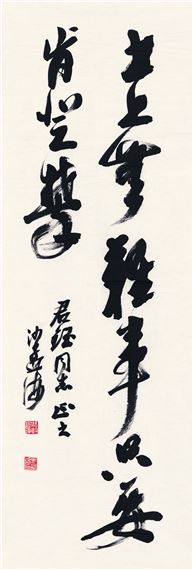 世上無難事只要
肯登攀
君鈺同志正之
沙孟海